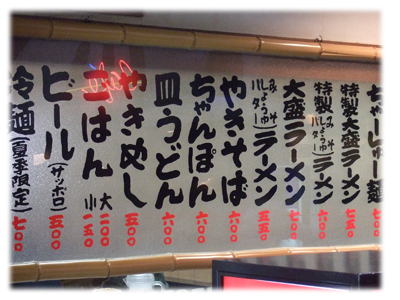 ちゃーしゅー麺
特製大盛ラーメン 七五〇
特製(みそ しょうゆ バター)ラーメン 六〇〇
大盛ラーメン 七〇〇
(みそ しょうゆ バター)ラーメン 五五〇
やきそば 六〇〇
ちゃんぽん 六〇〇
皿うどん 六〇〇
やきめし 五五〇
ごはん 大 二〇〇 小 一五〇
ビール(サッポロ) 五〇〇
冷麺(夏季限定) 七〇〇